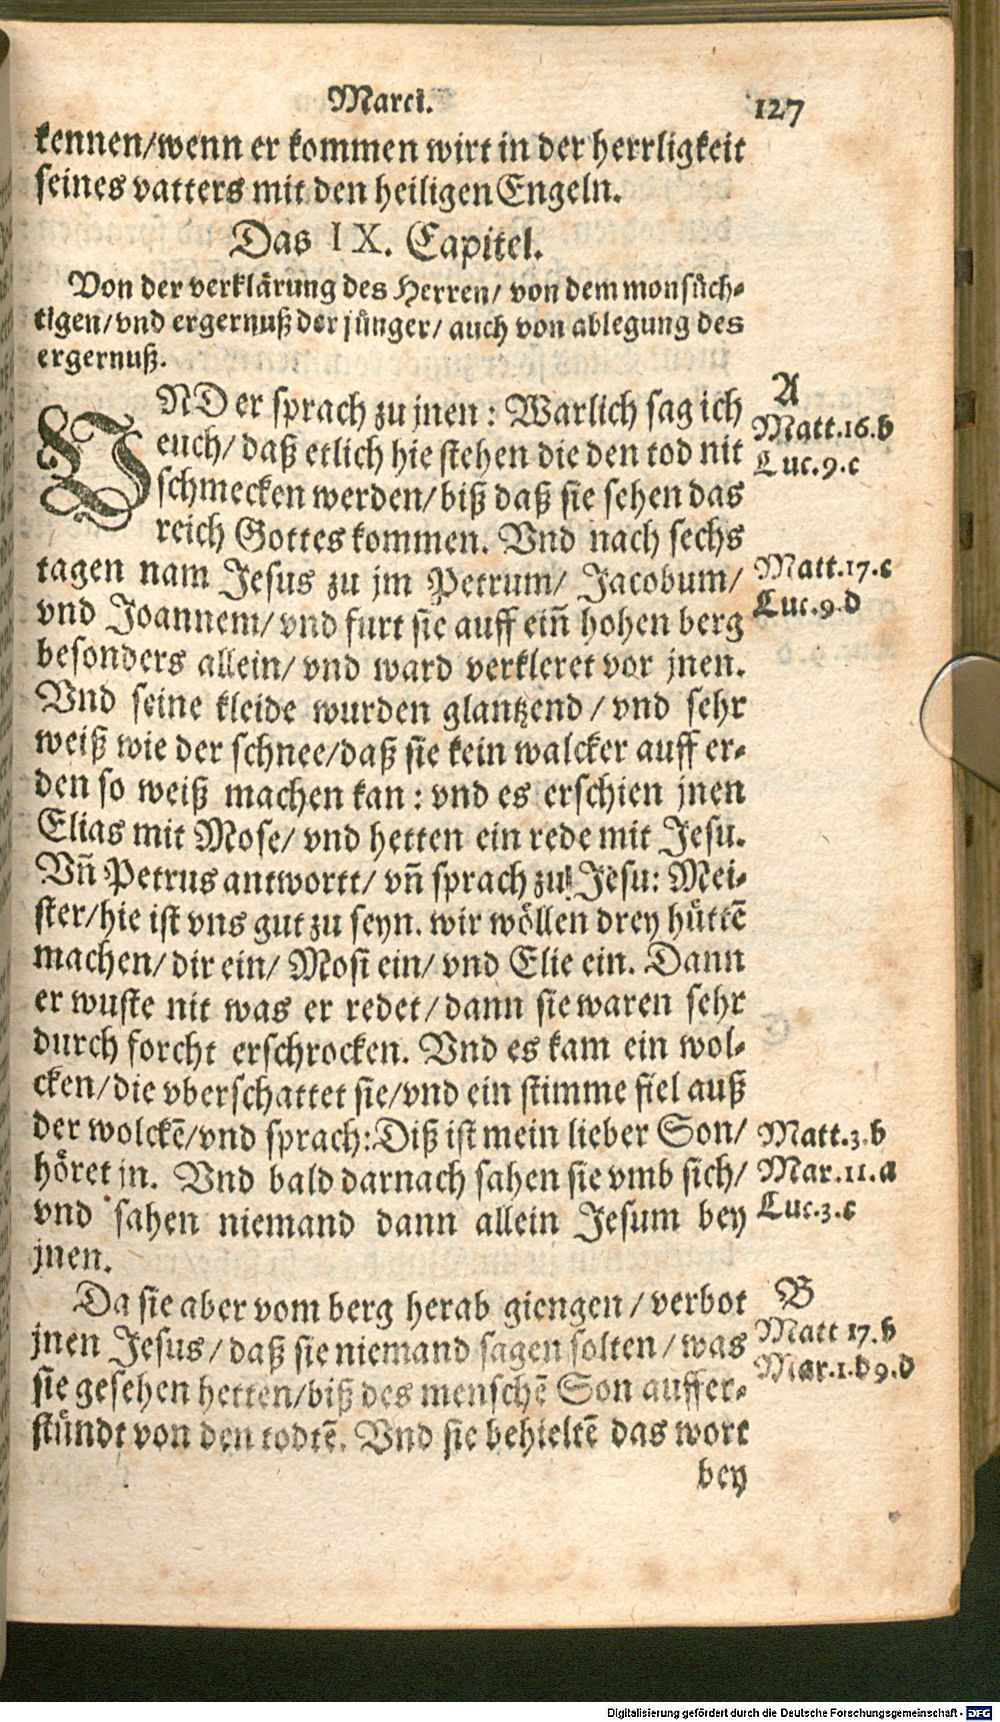 Marci. 127
kennen/wenn er kommen wirt in der herrligkeit
seines vatters mit den heiligen Engeln.
Das IX. Capitel.
Von der verklärung des Herren/ von dem monsüch-
tigen/vnd ergernuß der jünger/ auch von ablegung des
ergernuß.
VND er sprach zu jnen: Warlich sag ich
euch/ daß etlich hie stehen die den tod nit
schmecken werden/biß daß sie sehen das
reich Gottes kommen. Vnd nach sechs
tagen nam Jesus zu jm Petrum/ Jacobum/
vnd Joannem/ vnd furt sie auff eiñ hohen berg
besonders allein/ vnd ward verkleret vor jnen.
Vnd seine kleide wurden glantzend / vnd sehr
weiß wie der schnee/daß sie kein walcker auff er-
den so weiß machen kan: vnd es erschien jnen
Elias mit Mose/ vnd hetten ein rede mit Jesu.
Vñ Petrus antwortt/ vñ sprach zu Jesu: Mei-
ster/hie ist vns gut zu seyn. wir wöllen drey hüttē
machen/ dir ein/ Mosi ein/ vnd Elie ein. Dann
er wuste nit was er redet/ dann sie waren sehr
durch forcht erschrocken. Vnd es kam ein wol-
cken/ die vberschattet sie/vnd ein stimme fiel auß
der wolckē/vnd sprach: Diß ist mein lieber Son/
höret jn. Vnd bald darnach sahen sie vmb sich/
vnd sahen niemand dann allein Jesum bey
jnen.
Da sie aber vom berg herab giengen / verbot
jnen Jesus/ daß sie niemand sagen solten / was
sie gesehen hetten/biß des menschē Son auffer-
stündt von den todtē. Vnd sie behieltē das wort
bey
A
Matt.16.b
Luc.9.c
Matt.17.c
Luc.9.d
Matt.3.b
Mar.11.a
Luc.3.c
B
Matt 17.b
Mar.1.d 9.d
Digitalisierung gefördert durch die Deutsche Forschungsgemeinschaft - DFG